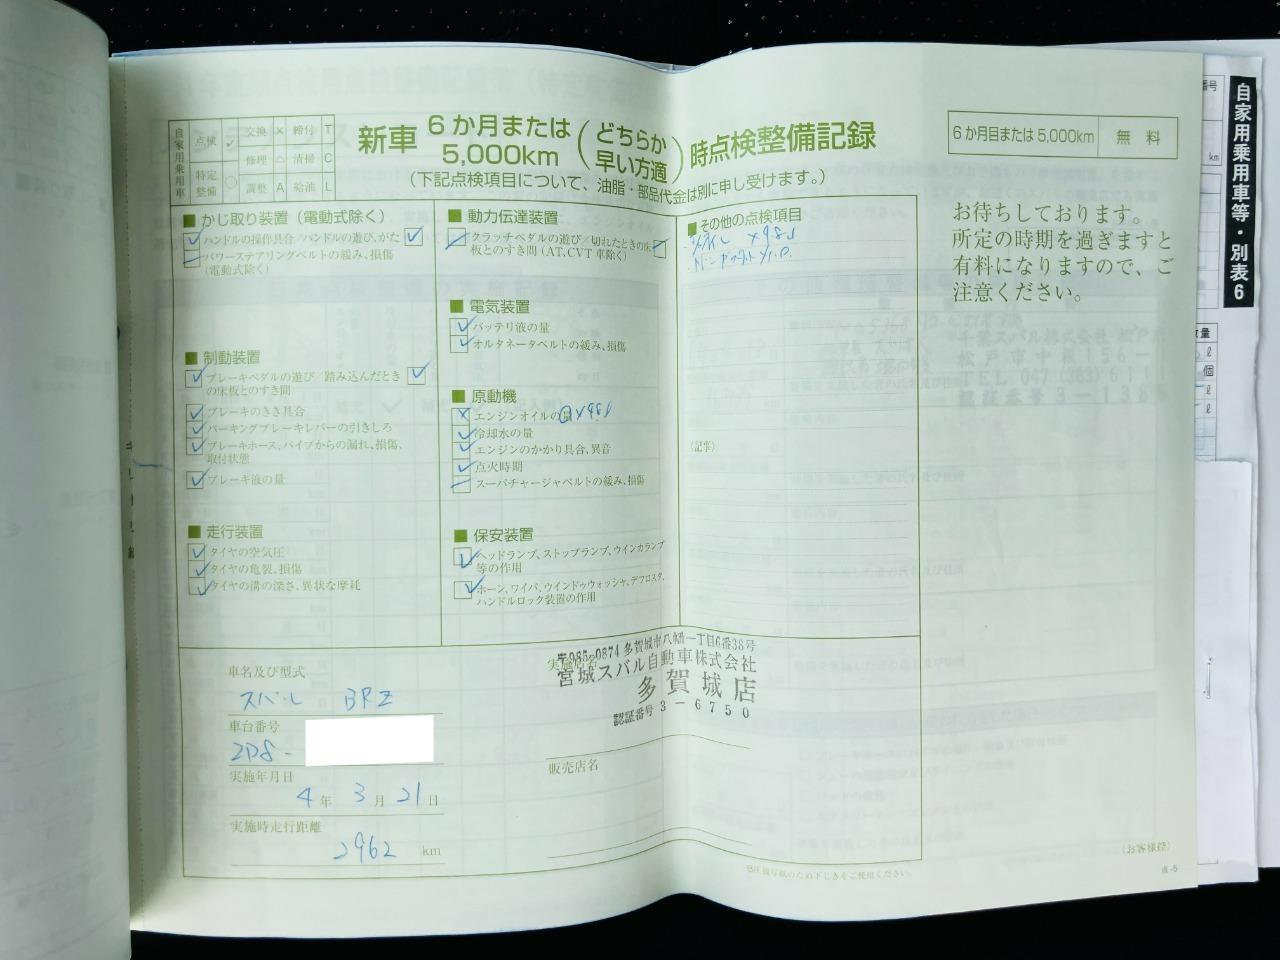 自家用乗用車
点検 ✓ 交換 × 締付 T
特定整備 ○ 修理 △ 清掃 C
調整 A 給油 L
新車 6か月または5,000km (どちらか早い方適) 時点検整備記録
(下記点検項目について、油脂・部品代金は別に申し受けます。)
6か月目または5,000km 無料
お待ちしております。
所定の時期を過ぎますと
有料になりますので、ご
注意ください。
■ かじ取り装置(電動式除く)
ハンドルの操作具合/ハンドルの遊び、がた
パワーステアリングベルトの緩み、損傷
(電動式除く)
■ 制動装置
ブレーキペダルの遊び/踏み込んだとき
の床板とのすき間
ブレーキのきき具合
パーキングブレーキレバーの引きしろ
ブレーキホース、パイプからの漏れ、損傷、
取付状態
ブレーキ液の量
■ 走行装置
タイヤの空気圧
タイヤの亀裂、損傷
タイヤの溝の深さ、異状な摩耗
■ 動力伝達装置
クラッチペダルの遊び/切れたときの床
板とのすき間(AT、CVT車除く)
■ 電気装置
バッテリ液の量
オルタネータベルトの緩み、損傷
■ 原動機
エンジンオイルの量
冷却水の量
エンジンのかかり具合、異音
点火時期
スーパチャージャベルトの緩み、損傷
■ 保安装置
ヘッドランプ、ストップランプ、ウインカランプ
等の作用
ホーン、ワイパ、ウインドゥウォッシャ、デフロスタ、
ハンドルロック装置の作用
■ その他の点検項目
(記事)
車名及び型式
スバル BRZ
車台番号
ZD8-
実施年月日
4年3月21日
実施時走行距離
2962 km
実施店名
〒985-0874 多賀城市八幡一丁目6番38号
宮城スバル自動車株式会社
多賀城店
認証番号 3-6750
販売店名
(お客様控)
点-5
自家用乗用車等・別表6